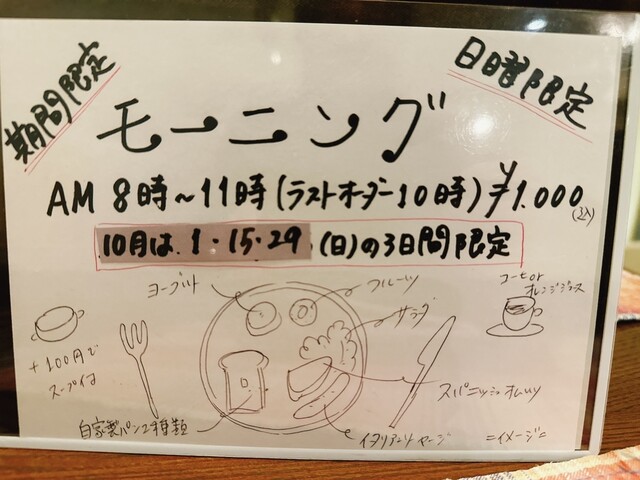 期間限定
日曜限定
モーニング
AM 8時～11時(ラストオーダー10時) ¥1.000
(税込)
10月は 1・15・29 (日)の3日間限定
ヨーグルト
フルーツ
コーヒーor
オレンジジュース
サラダ
+100円で
スープ付
スパニッシュオムレツ
自家製パン2種類
イタリアンソーセージ
=イメージ=